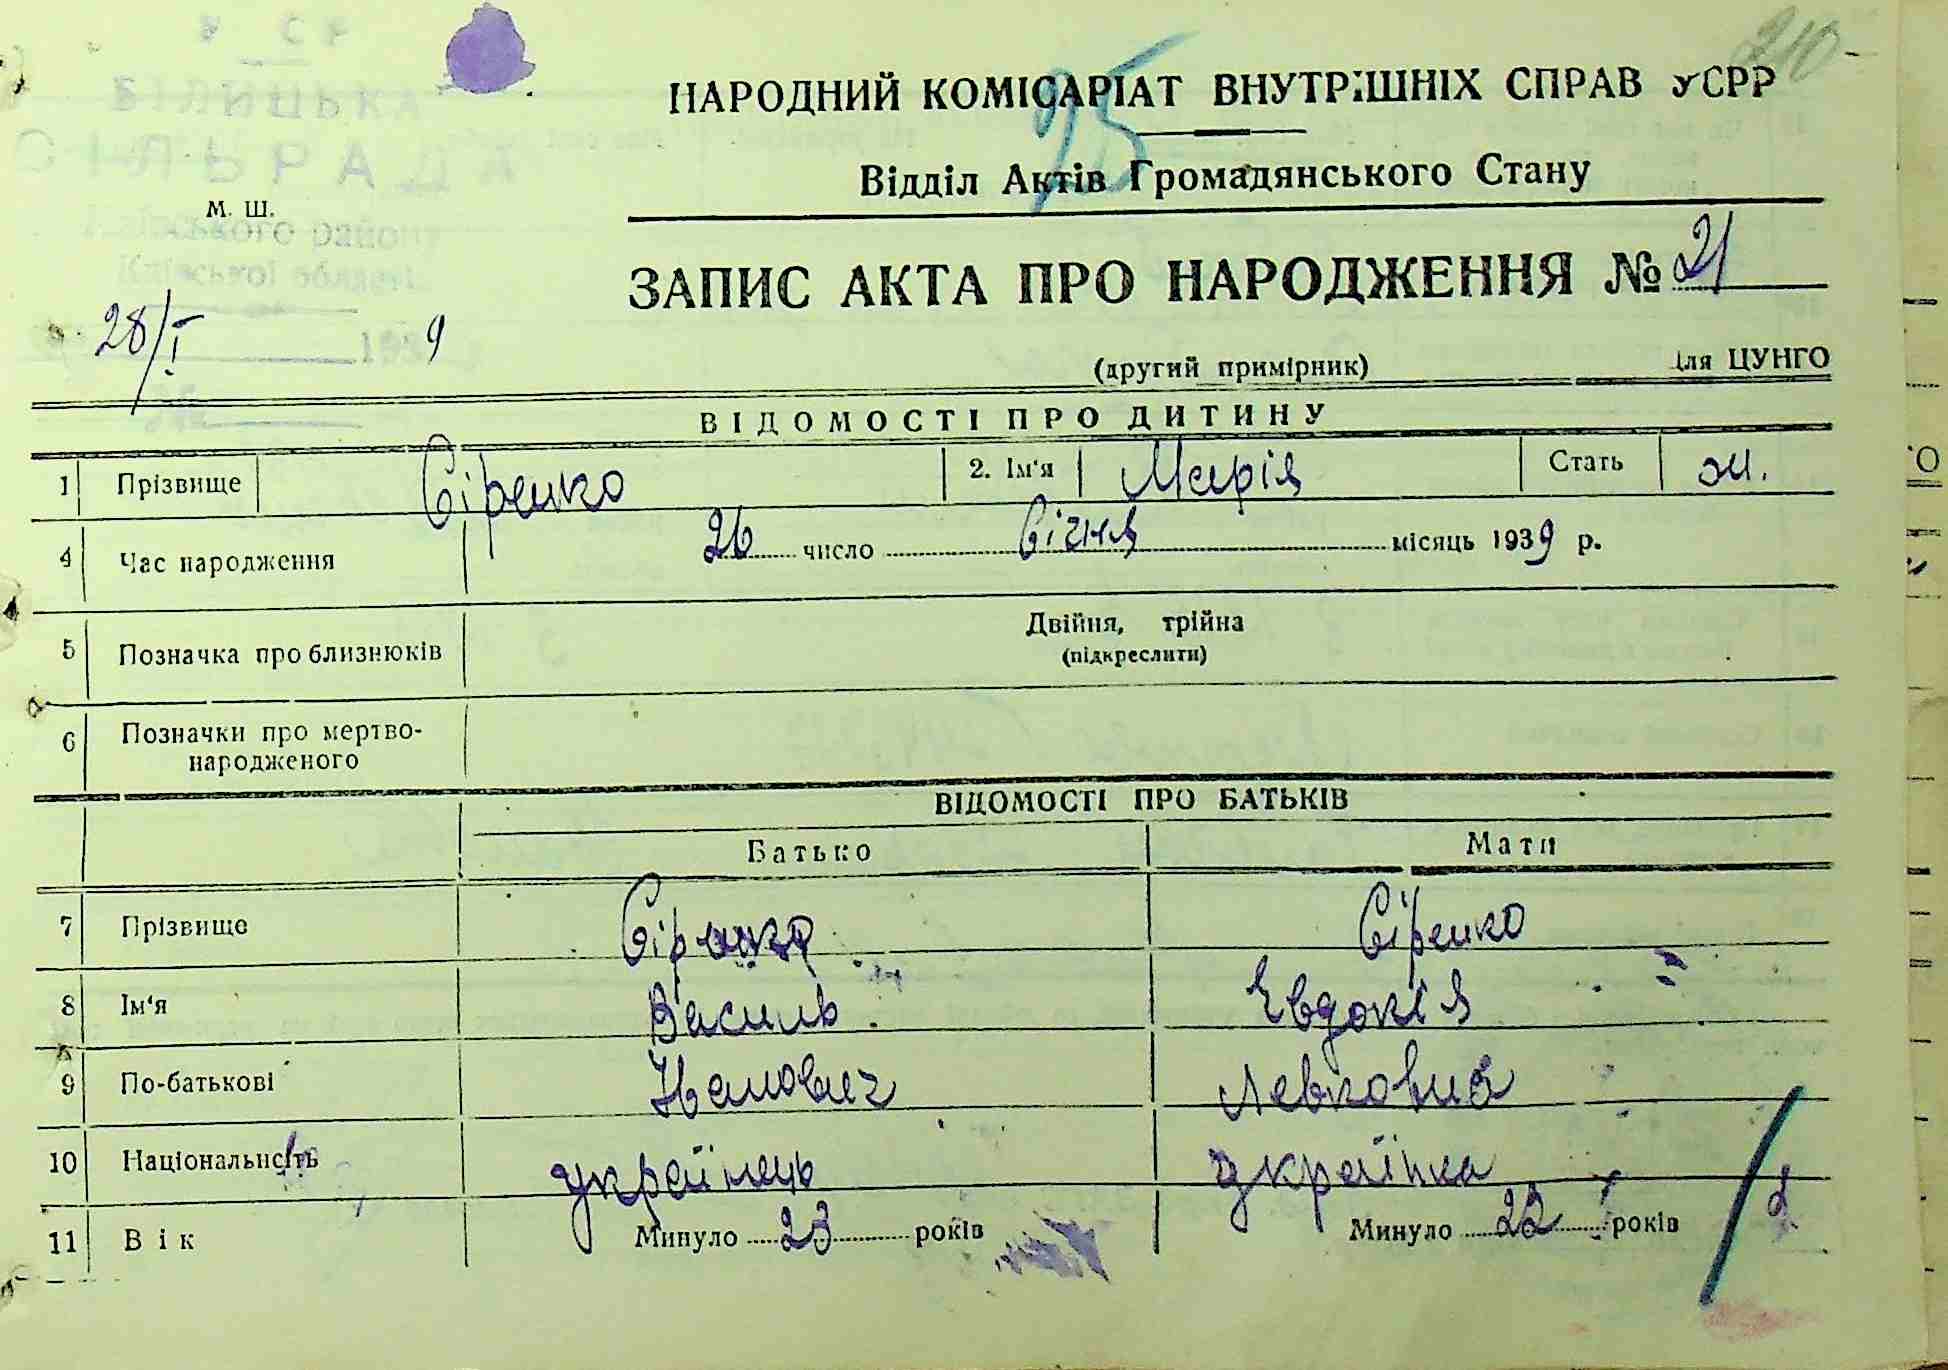 210
УСР
БІЛИЦЬКА
СІЛЬРАДА
Київського району
Київської області
М. Ш.
НАРОДНИЙ КОМІСАРІАТ ВНУТРІШНІХ СПРАВ УСРР
95
Відділ Актів Громадянського Стану
ЗАПИС АКТА ПРО НАРОДЖЕННЯ № 21
28/I 1939
(другий примірник) для ЦУНГО
ВІДОМОСТІ ПРО ДИТИНУ
1 Прізвище Сіренко 2. Ім'я Марія Стать ж.
4 Час народження 26 число Січня місяць 1939 р.
5 Позначка про близнюків Двійня, трійна
(підкреслити)
6 Позначки про мертво-
народженого
ВІДОМОСТІ ПРО БАТЬКІВ
Батько Мати
7 Прізвище Сіренко Сіренко
8 Ім'я Василь Євдокія
9 По-батькові Левковна
10 Національність українець українка
11 Вік Минуло 23 років Минуло 22 років